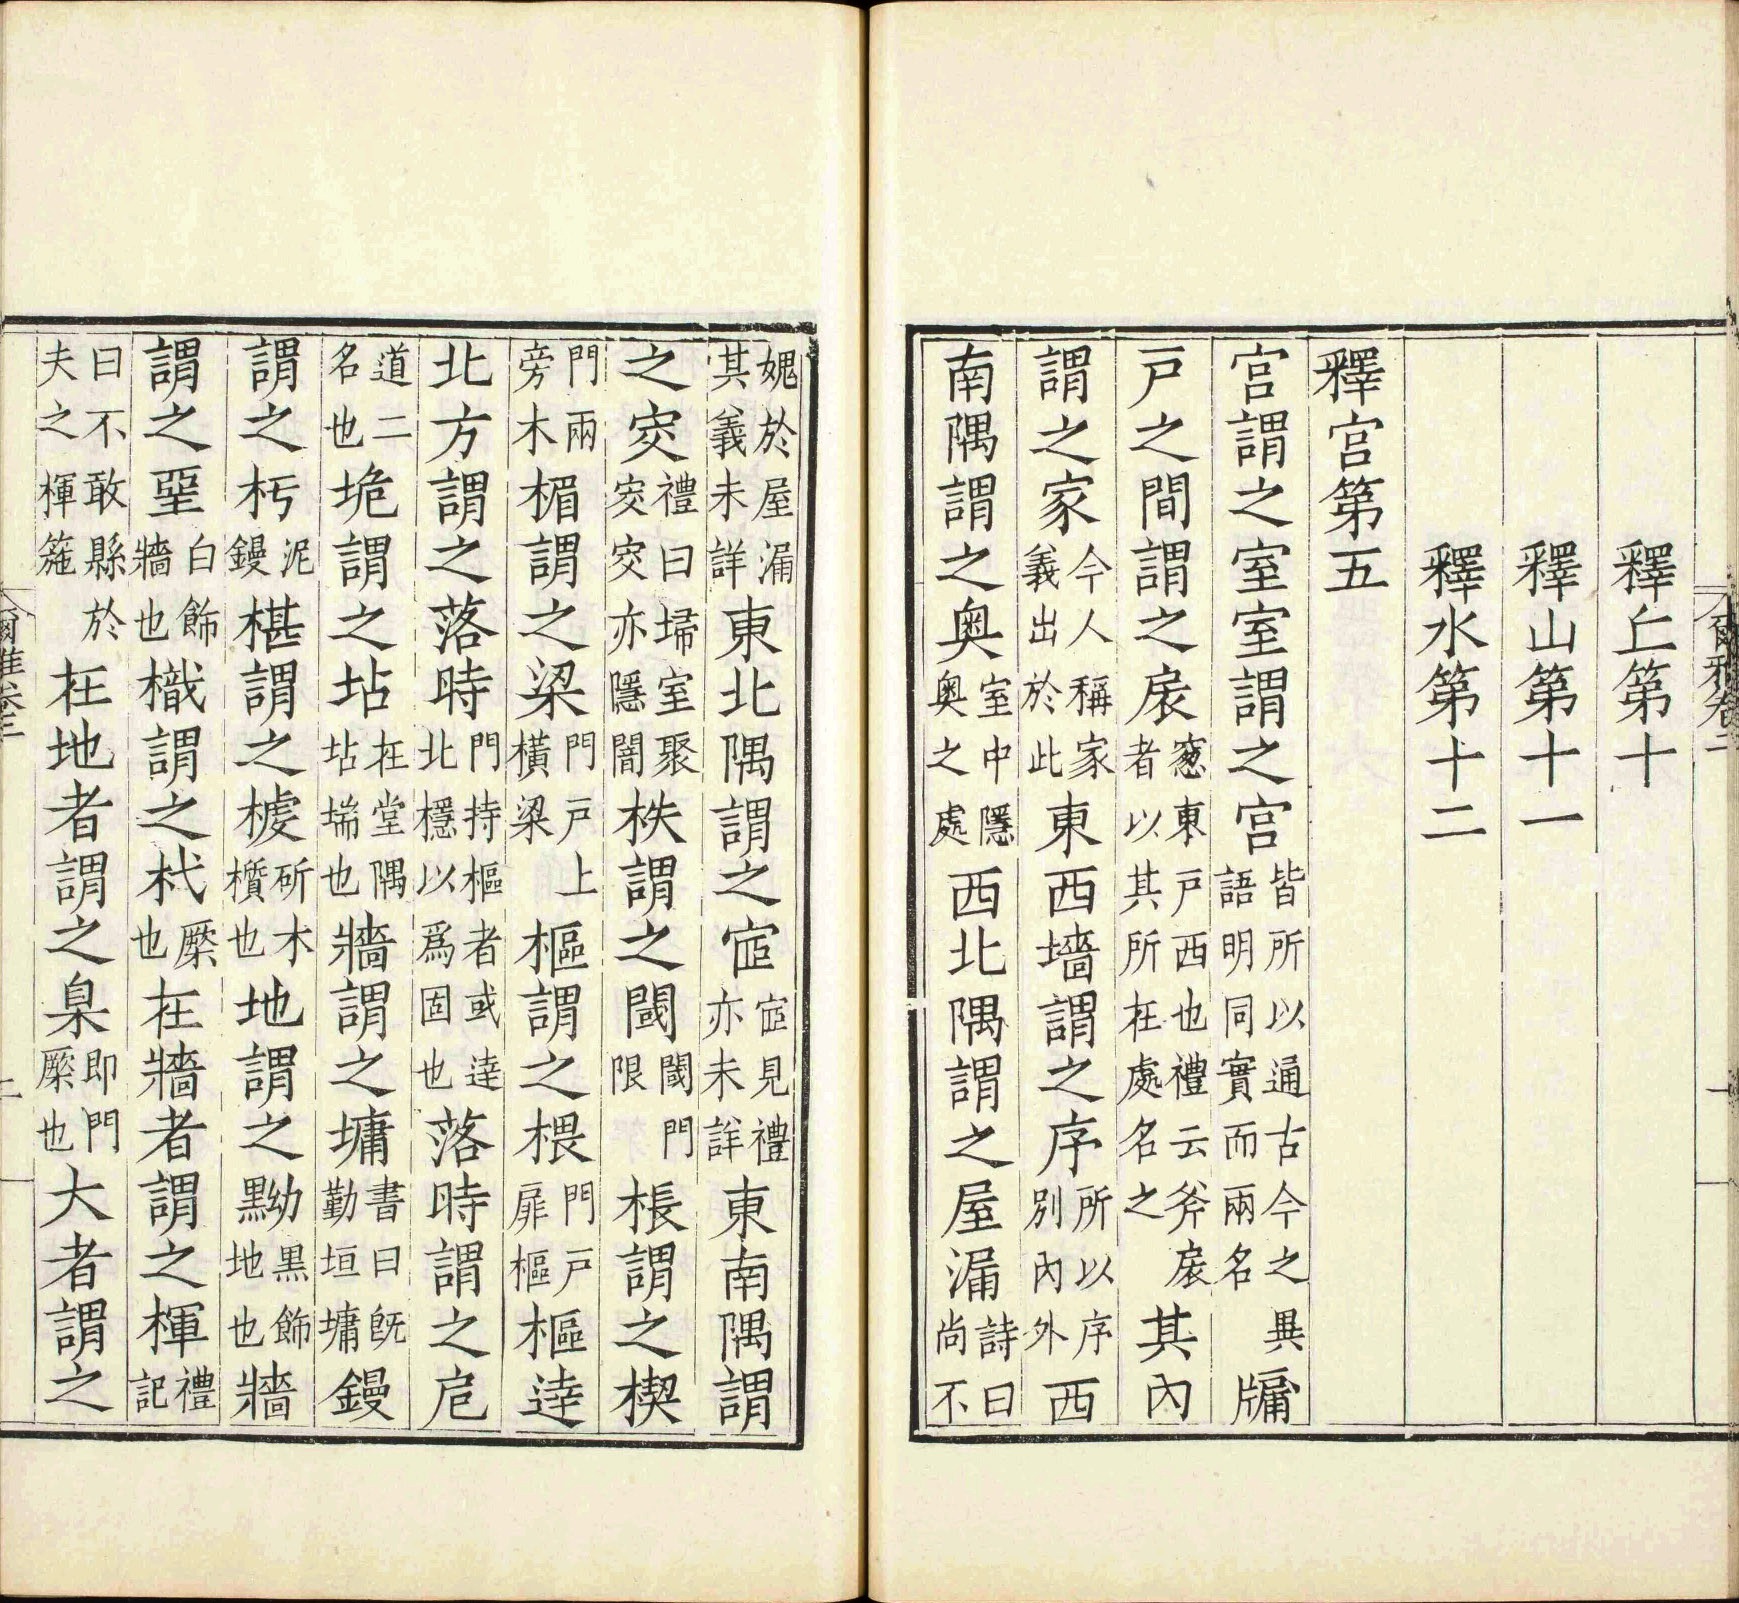 釋丘第十
釋山第十一
釋水第十二
釋宫第五
宫謂之室室謂之宫皆所以通古今之異語明同實而兩名牖
戶之間謂之扆窻東戶西也禮云斧扆者以其所在處名之其內
謂之家今人稱家義出於此東西墻謂之序所以序別內外西
南隅謂之奥室中隱奥之處西北隅謂之屋漏詩曰尚不
媿於屋漏其義未詳東北隅謂之宧宧見禮亦未詳東南隅謂
之窔禮曰埽室聚窔窔亦隱闇柣謂之閾閾門限棖謂之楔
門兩旁木楣謂之梁門戶上橫梁樞謂之椳門戶扉樞樞達
北方謂之落時門持樞者或達北檼以爲固也落時謂之戹
道二名也垝謂之坫在堂隅坫端也牆謂之墉書曰旣勤垣墉鏝
謂之杇泥鏝椹謂之榩斫木櫍也地謂之黝黑飾地也牆
謂之堊白飾牆也樴謂之杙橜也在牆者謂之楎禮記
曰不敢縣於夫之楎箷在地者謂之臬即門橜也大者謂之